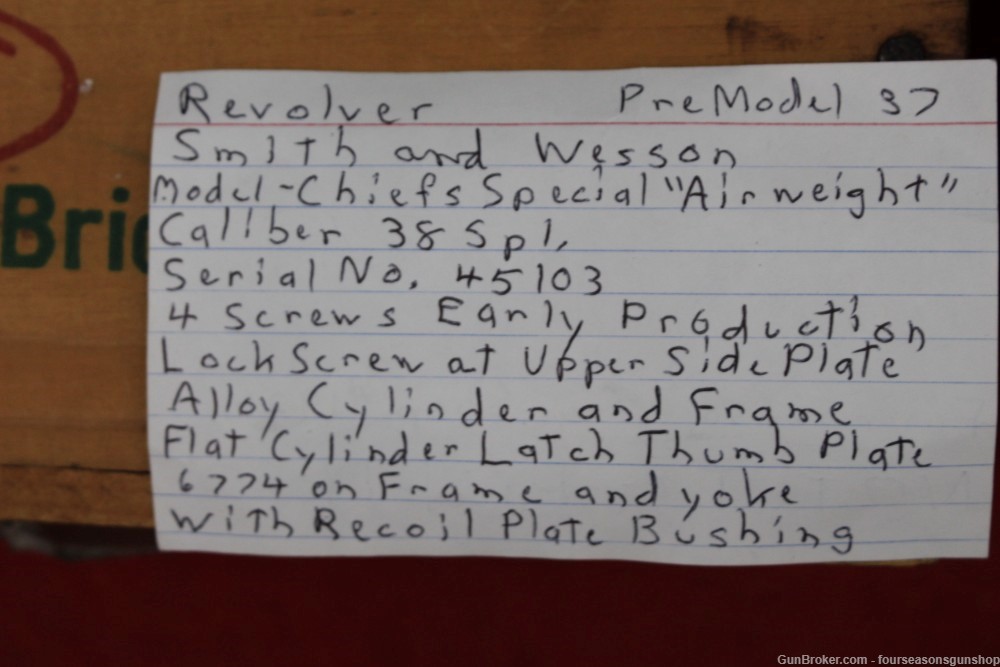 Revolver PreModel 37
Smith and Wesson
Model-Chiefs Special "Airweight"
Caliber 38 Spl,
Serial No. 45103
4 Screws Early Production
Lock Screw at Upper Side Plate
Alloy Cylinder and Frame
Flat Cylinder Latch Thumb Plate
6774 on Frame and yoke
With Recoil Plate Bushing
Bri
GunBroker.com - fourseasonsgunshop